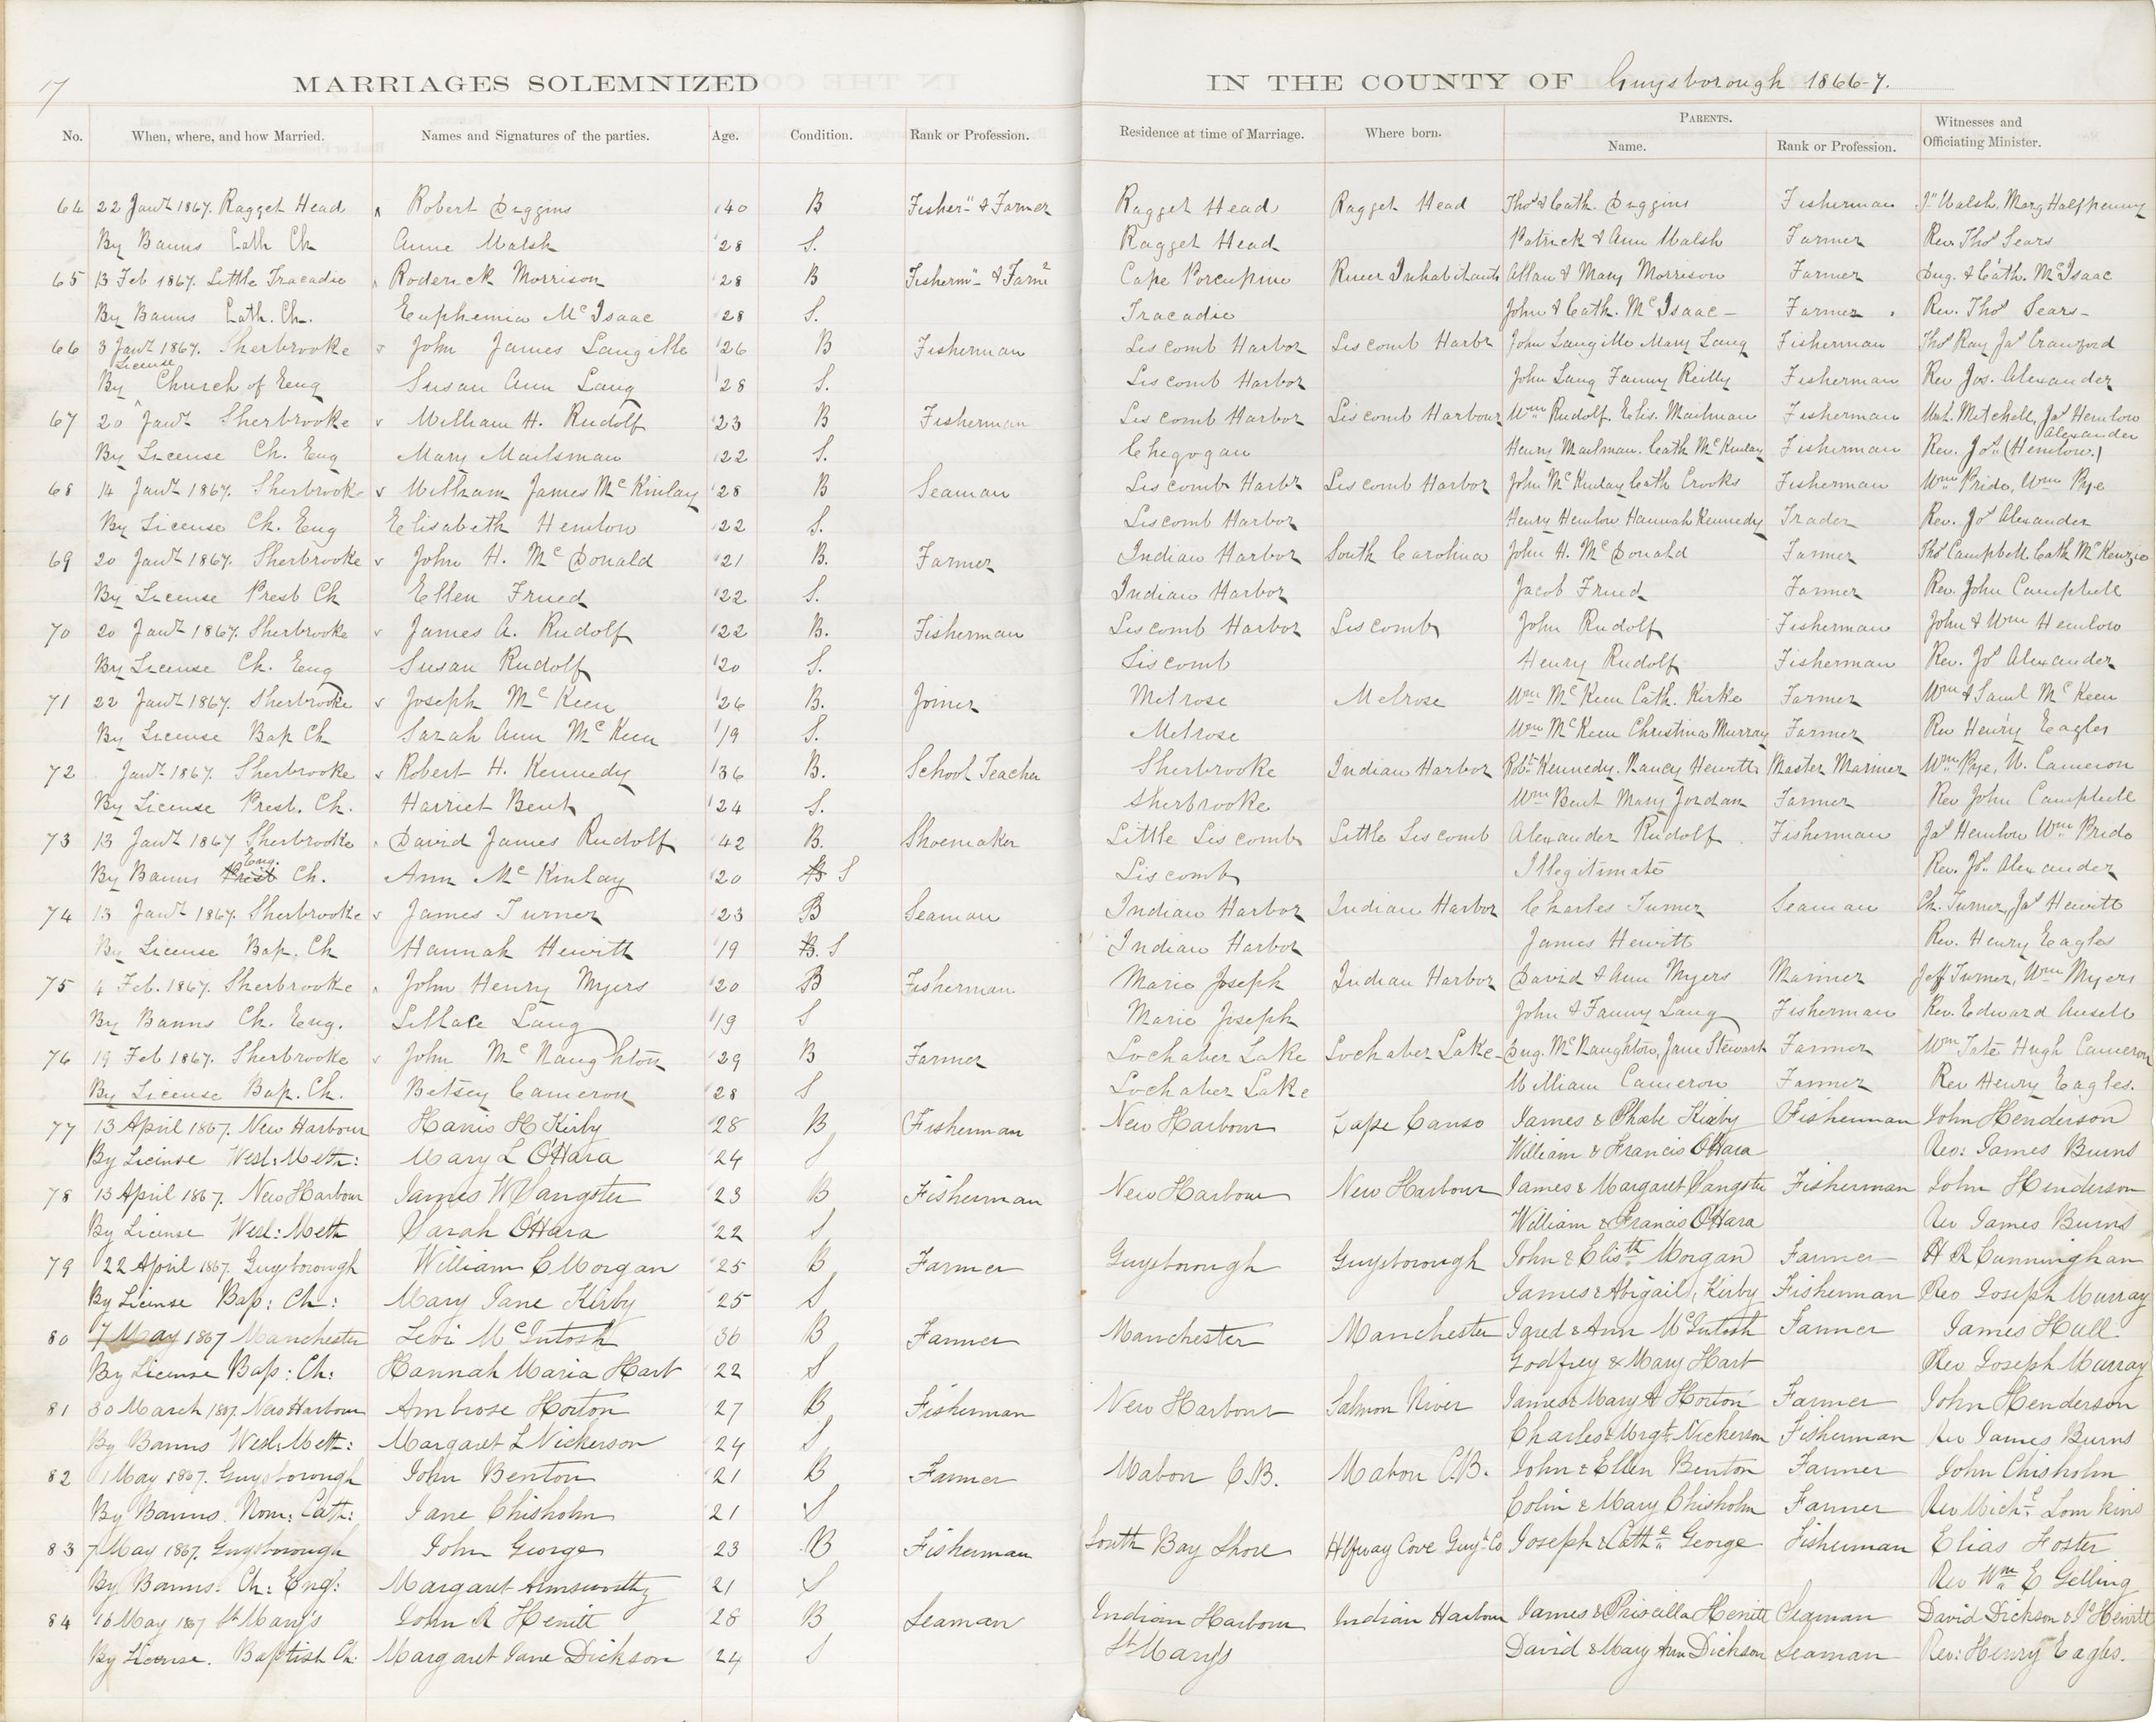 17
MARRIAGES SOLEMNIZED IN THE COUNTY OF Guysborough 1866-7.
No. When, where, and how Married. Names and Signatures of the parties. Age. Condition. Rank or Profession. Residence at time of Marriage. Where born. PARENTS. Name. Rank or Profession. Witnesses and Officiating Minister.
64 22 Jany 1867. Ragget Head Robert Diggins 40 B Fisherⁿ & Farmer Ragget Head Ragget Head Thos & Cath. Diggins Fisherman Jⁿ Walsh, Mary Halfpenny
By Banns Cath Ch Anne Walsh 28 S. Ragget Head Patrick & Ann Walsh Farmer Rev. Thos Sears
65 13 Feb 1867. Little Tracadie Roderick Morrison 28 B Fishermⁿ & Farmr Cape Porcupine River Inhabitants Allan & Mary Morrison Farmer Dug. & Cath. McIsaac
By Banns Cath. Ch. Euphemia McIsaac 28 S. Tracadie John & Cath. McIsaac Farmer Rev. Thos Sears
66 3 Jany 1867. Sherbrooke John James Langille 26 B Fisherman Liscomb Harbor Liscomb Harbr John Langille Mary Lang Fisherman Thos Ray Jas Crawford
By License Church of Eng Susan Ann Lang 28 S. Liscomb Harbor John Lang Fanny Reilly Fisherman Rev Jos. Alexander
67 20 Jany Sherbrooke William H. Rudolf 23 B Fisherman Liscomb Harbor Liscomb Harbour Wm Rudolf. Elis. Mailman Fisherman Mitchell, Jas Hemlow
By License Ch. Eng Mary Mailsman 22 S. Chegogan Henry Mailman. Cath McKinlay Fisherman Rev. Jos (Hemlow.) Alexander
68 14 Jany 1867. Sherbrooke William James McKinlay 28 B Seaman Liscomb Harbr Liscomb Harbor John McKinlay Cath Crooks Fisherman Wm Pride, Wm Pye
By License Ch. Eng Elisabeth Hemlow 22 S. Liscomb Harbor Henry Hemlow Hannah Kennedy Trader Rev. Jos Alexander
69 20 Jany 1867. Sherbrooke John H. McDonald 21 B. Farmer Indian Harbor South Carolina John H. McDonald Farmer Thos Campbell. Cath McKenzie
By License Presb Ch Ellen Frued 22 S. Indian Harbor Jacob Frued Farmer Rev. John Campbell
70 20 Jany 1867. Sherbrooke James A. Rudolf 22 B. Fisherman Liscomb Harbor Liscomb John Rudolf Fisherman John & Wm Hemlow
By License Ch. Eng Susan Rudolf 20 S. Liscomb Henry Rudolf Fisherman Rev. Jos Alexander
71 22 Jany 1867. Sherbrooke Joseph McKeen 26 B. Joiner Melrose Melrose Wm McKeen Cath. Kirke Farmer Wm & Saml McKeen
By License Bap Ch Sarah Ann McKeen 19 S. Melrose Wm McKeen Christina Murray Farmer Rev Henry Eagles
72 Jany 1867. Sherbrooke Robert H. Kennedy 36 B. School Teacher Sherbrooke Indian Harbor Robt Kennedy. Nancy Hewitt Master Mariner Wm Pye, W. Cameron
By License Presb. Ch. Harriet Bent 24 S. Sherbrooke Wm Bent Mary Jordan Farmer Rev John Campbell
73 13 Jany 1867 Sherbrooke David James Rudolf 42 B. Shoemaker Little Liscomb Little Liscomb Alexander Rudolf Fisherman Jas Hemlow Wm Pride
By Banns Presb Eng. Ch. Ann McKinlay 20 B S Liscomb Illegitimate Rev. Jos. Alexander
74 13 Jany 1867. Sherbrooke James Turner 23 B Seaman Indian Harbor Indian Harbor Charles Turner Seaman Ch. Turner, Jas Hewitt
By License Bap. Ch Hannah Hewitt 19 B. S Indian Harbor James Hewitt Rev. Henry Eagles
75 4 Feb. 1867. Sherbrooke John Henry Myers 20 B Fisherman Marie Joseph Indian Harbor David & Ann Myers Mariner Jeff Turner, Wm Myers
By Banns Ch. Eng. Lillace Lang 19 S Marie Joseph John & Fanny Lang Fisherman Rev. Edward Ansell
76 19 Feb 1867. Sherbrooke John McNaughton 29 B Farmer Lochaber Lake Lochaber Lake Dug. McNaughton, Jane Stewart Farmer Wm Tate Hugh Cameron
By License Bap. Ch. Betsey Cameron 28 S Lochaber Lake William Cameron Farmer Rev Henry Eagles.
77 13 April 1867. New Harbour Harris H Kirby 28 B Fisherman New Harbour Cape Canso James & Phebe Kirby Fisherman John Henderson
By License Wesl: Meth: Mary L O'Hara 24 S William & Francis O'Hara Rev: James Burns
78 13 April 1867. New Harbour James W Sangster 23 B Fisherman New Harbour New Harbour James & Margaret Sangster Fisherman John Henderson
By License Wesl: Meth Sarah O'Hara 22 S William & Francis O'Hara Rev James Burns
79 22 April 1867. Guysborough William C Morgan 25 B Farmer Guysborough Guysborough John & Elisth Morgan Farmer H R Cunningham
By License Bap: Ch: Mary Jane Kirby 25 S James & Abigail Kirby Fisherman Rev Joseph Murray
80 7 May 1867 Manchester Levi McIntosh 36 B Farmer Manchester Manchester Jared & Ann McIntosh Farmer James Hull
By License Bap: Ch: Hannah Maria Hart 22 S Godfrey & Mary Hart Rev Joseph Murray
81 30 March 1867. New Harbour Ambrose Horton 27 B Fisherman New Harbour Salmon River James & Mary A Horton Farmer John Henderson
By Banns Wesl: Meth: Margaret L Nickerson 24 S Charles & Mrgt Nickerson Fisherman Rev James Burns
82 1 May 1867. Guysborough John Benton 21 B Farmer Mabou C.B. Mabou C.B. John & Ellen Benton Farmer John Chisholm
By Banns. Rom: Cath: Jane Chisholm 21 S Colin & Mary Chisholm Farmer Rev Michl Tomkins
83 7 May 1867. Guysborough John George 23 B Fisherman South Bay Shore Hfway Cove Guy. Co Joseph & Cathe George Fisherman Elias Foster
By Banns. Ch: Eng: Margaret Armsworthy 21 S Rev Wm E Gelling
84 16 May 1867 St Mary's John R Hewitt 28 B Seaman Indian Harbour Indian Harbour James & Priscilla Hewitt Seaman David Dickson & Js Hewitt
By License. Baptist Ch. Margaret Jane Dickson 24 S St Mary's David & Mary Ann Dickson Seaman Rev: Henry Eagles.